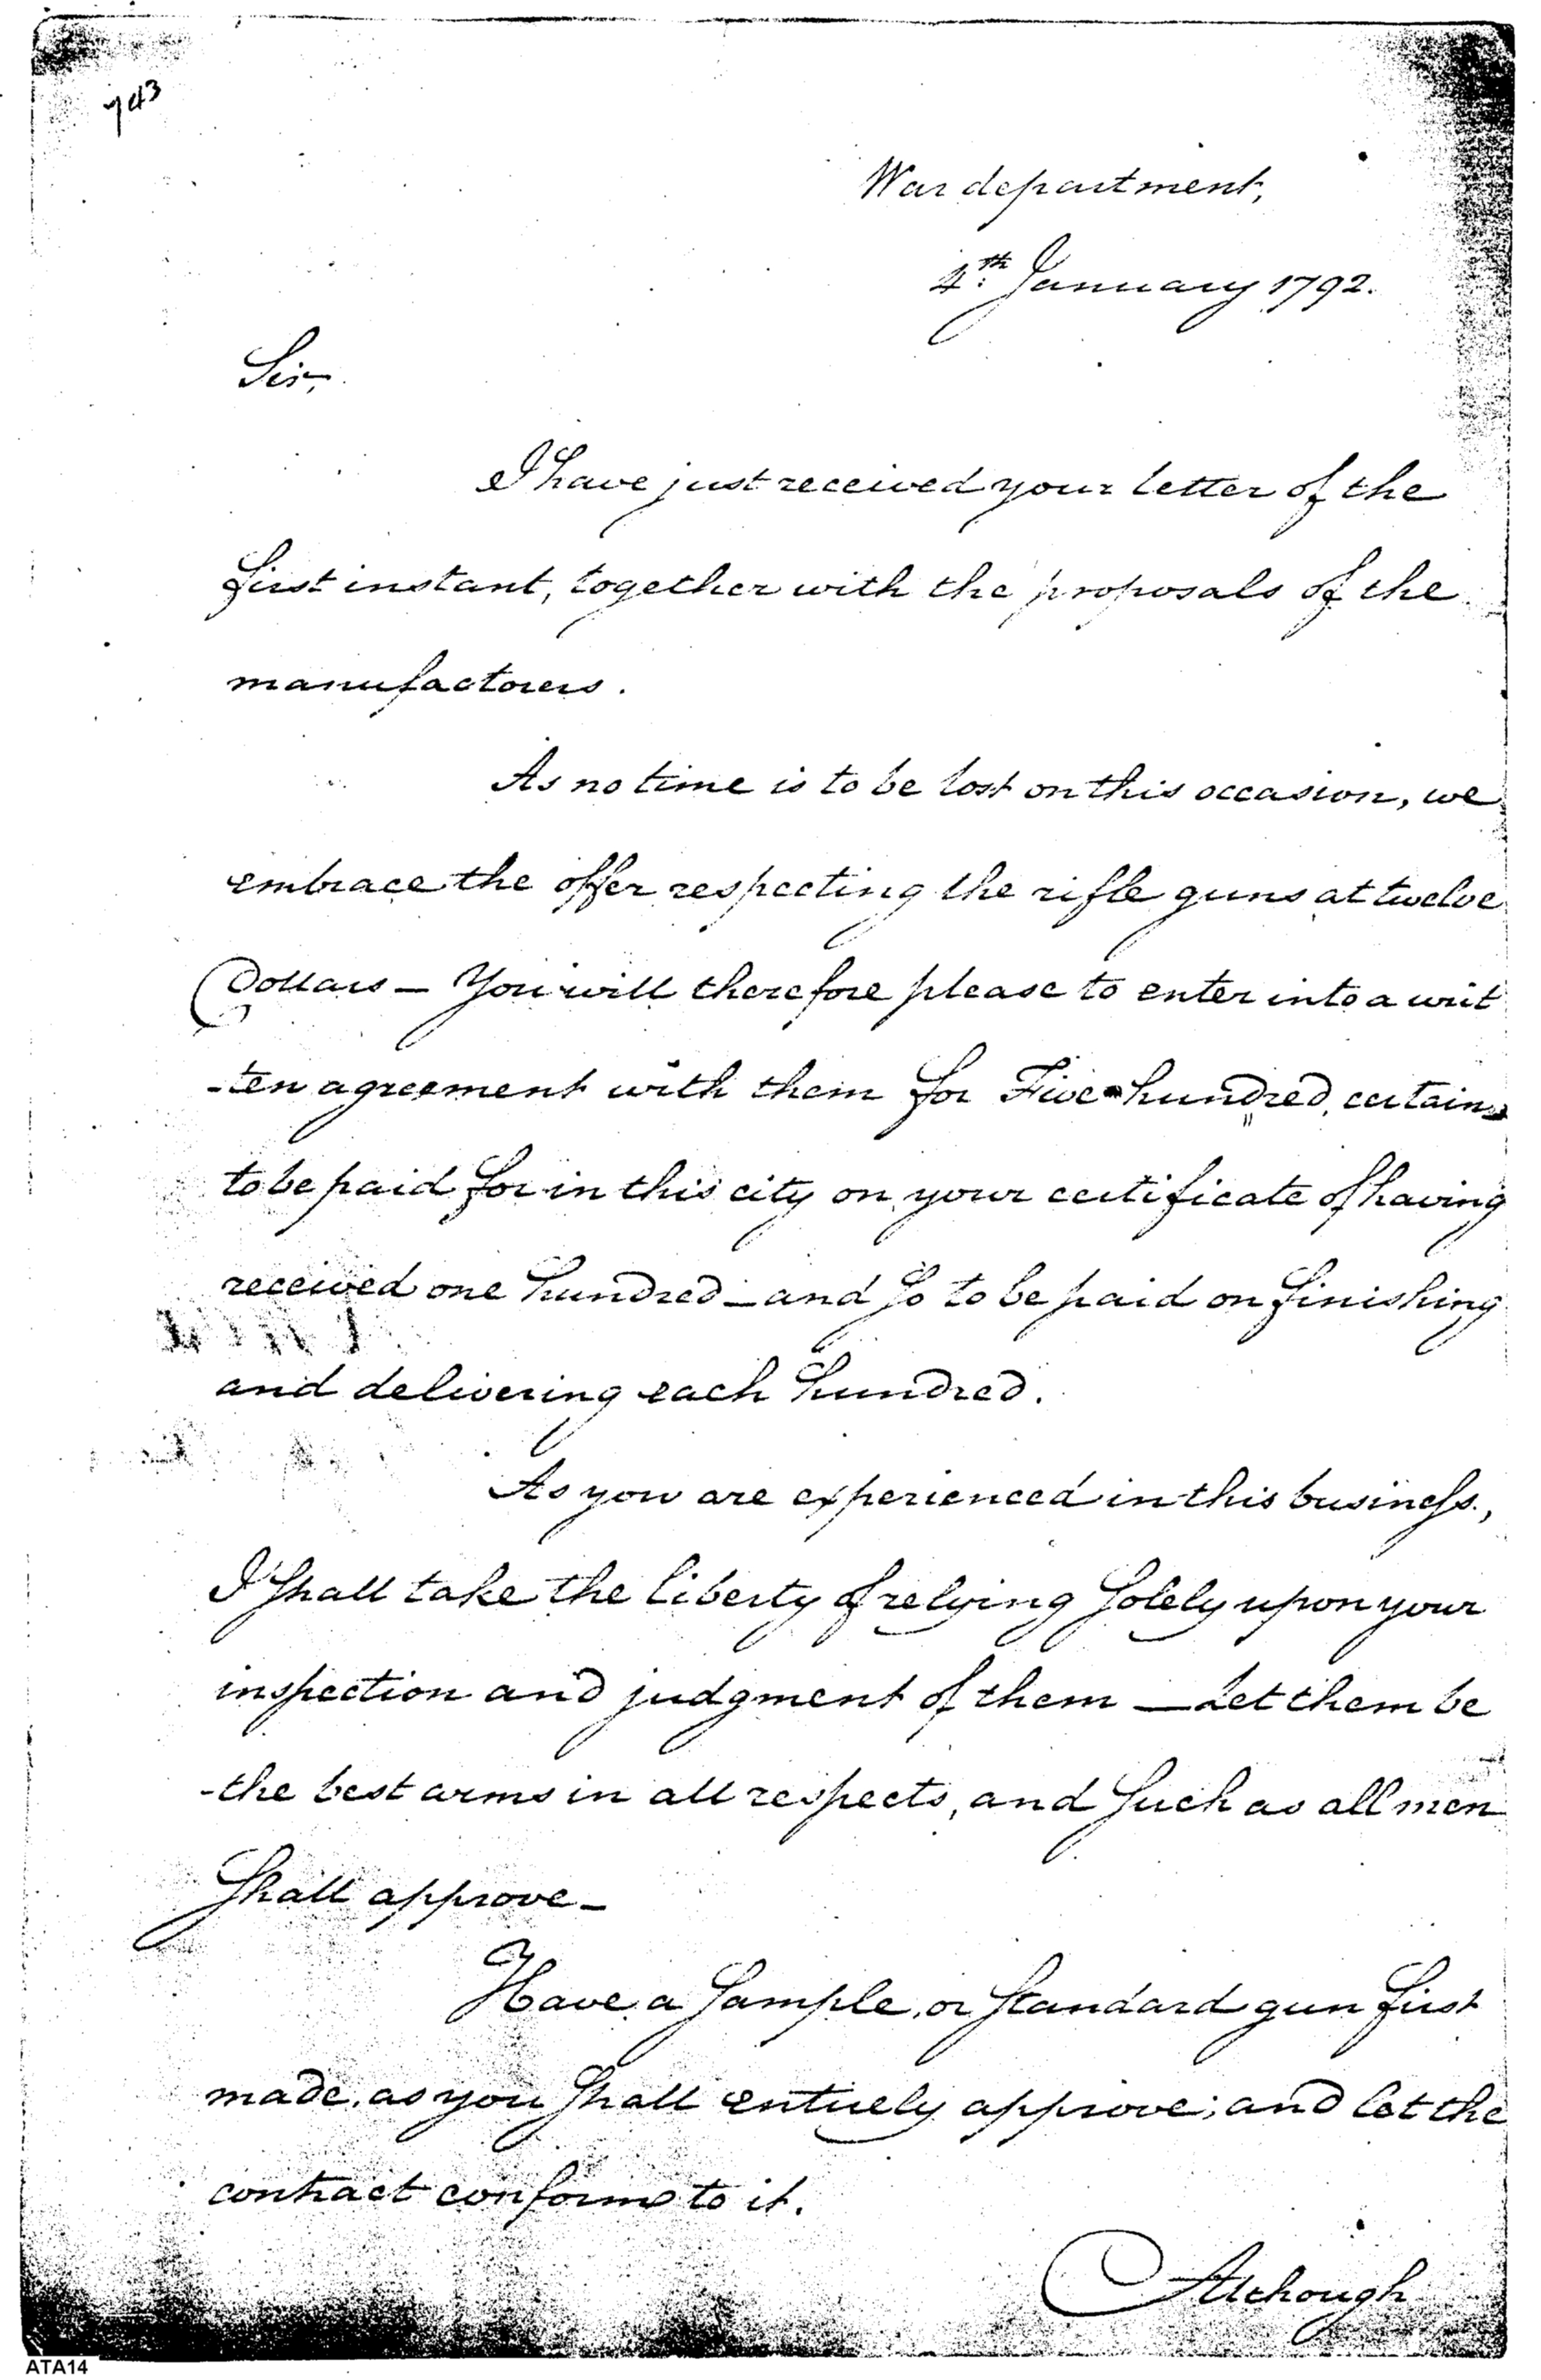 743
War department,
4th January 1792.
Sir,
I have just received your letter of the
first instant, together with the proposals of the
manufactorers.
As no time is to be lost on this occasion, we
embrace the offer respecting the rifle guns at twelve
Dollars — You will therefore please to enter into a writ
-ten agreement with them for Five hundred, certain,
to be paid for in this city on your certificate of having
received one hundred — and so to be paid on finishing
and delivering each hundred.
As you are experienced in this business,
I shall take the liberty of relying solely upon your
inspection and judgment of them — Let them be
the best arms in all respects, and such as all men
shall approve —
Have a sample, or standard gun first
made, as you shall entirely approve; and let the
contract conform to it.
Although
ATA14